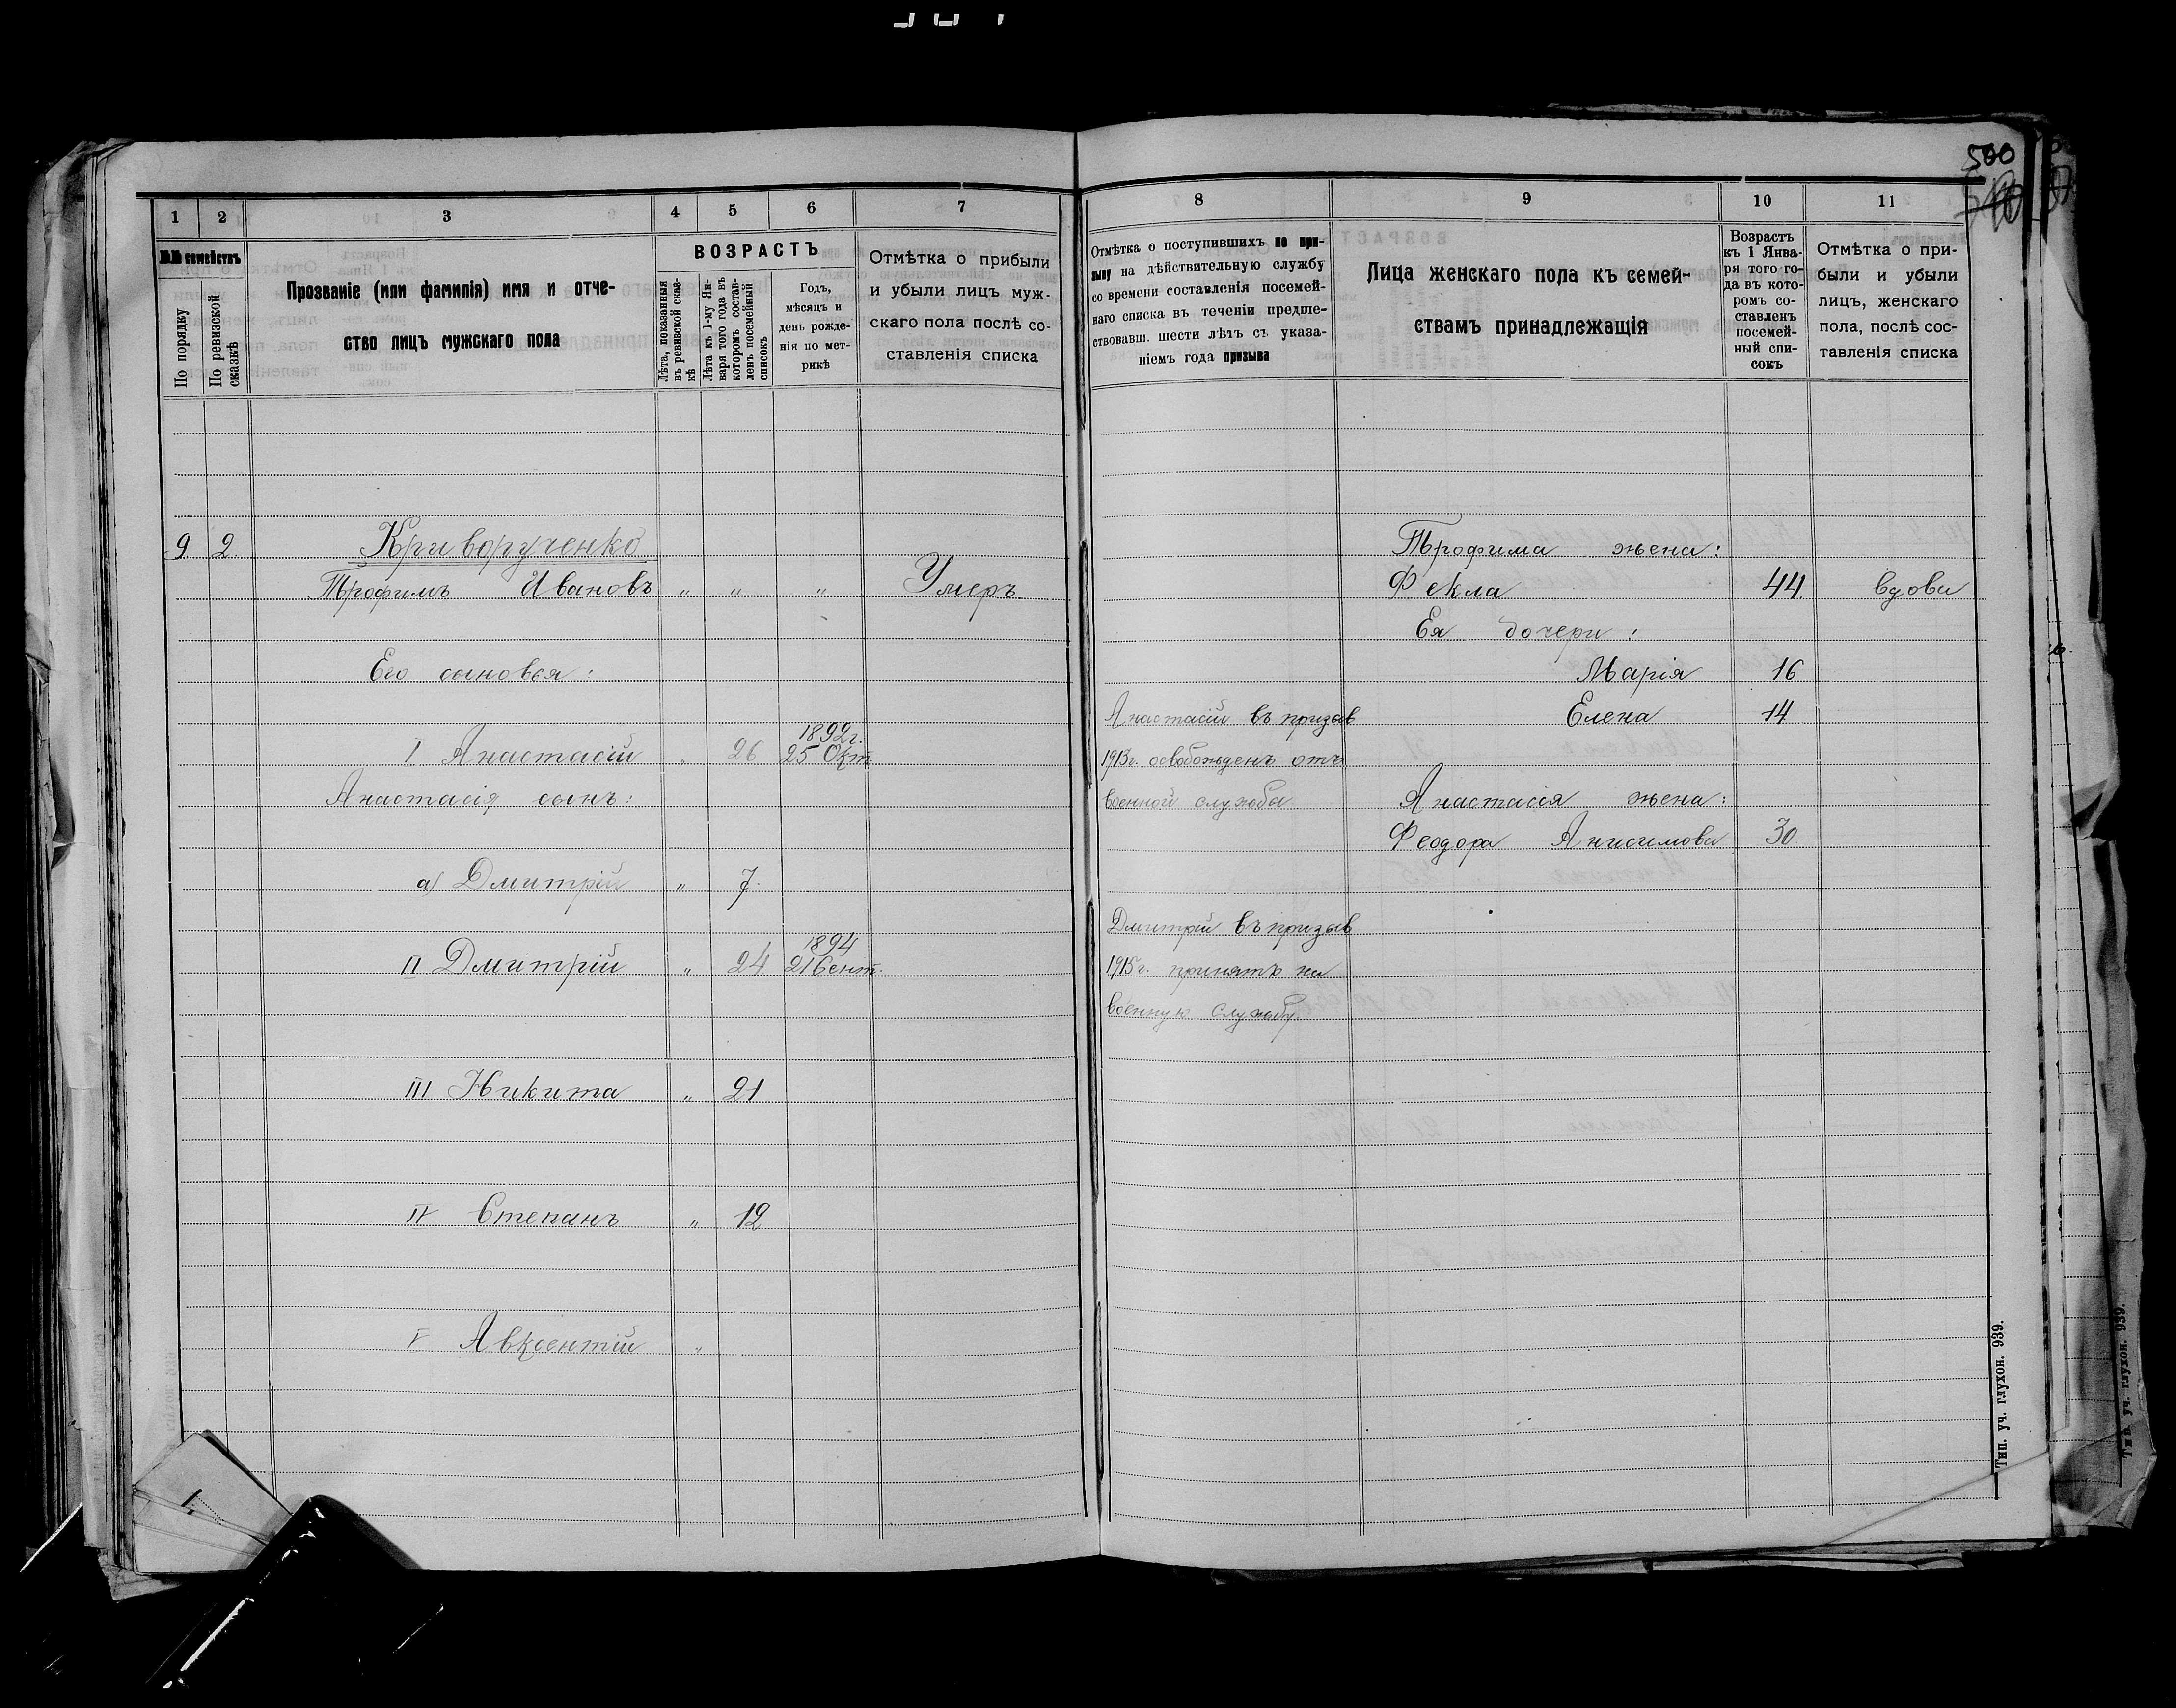 500
1 2 3 4 5 6 7
№№ семействъ
По порядку
По ревизской сказкѣ
Прозваніе (или фамилія) имя и отче-
ство лицъ мужскаго пола
ВОЗРАСТЪ
Лѣта, показанныя
въ ревизской сказ-
кѣ
Лѣта къ 1-му Ян-
варя того года въ
которомъ состав-
ленъ посемейный
списокъ
Годъ,
мѣсяцъ и
день рожде-
нія по мет-
рикѣ
Отмѣтка о прибыли
и убыли лицъ муж-
скаго пола послѣ со-
ставленія списка
9 2 Криворученко
Трофимъ Ивановъ „ „ „ Умеръ
Его сыновья:
1892г.
I Анастасій „ 26 25 Окт
Анастасія сынъ:
а) Дмитрій „ 7.
1894
II Дмитрій „ 24 21 Сент.
III Никита „ 21
IV Степанъ „ 12
V Авксентій „
8 9 10 11
Отмѣтка о поступившихъ по при-
зыву на дѣйствительную службу
со времени составленія посемей-
наго списка въ теченіи предше-
ствовавш. шести лѣтъ съ указа-
ніемъ года призыва
Лица женскаго пола къ семей-
ствамъ принадлежащія
Возрастъ
къ 1 Янва-
ря того го-
да въ кото-
ромъ со-
ставленъ
посемей-
ный спи-
сокъ
Отмѣтка о при-
были и убыли
лицъ, женскаго
пола, послѣ сос-
тавленія списка
Трофима жена:
Фекла 44 вдова
Ея дочери:
Марія 16
Анастасій въ призыв Елена 14
1913г. освобожденъ отъ
военной службы Анастасія жена:
Феодора Анисимова 30
Дмитрій въ призыв
1915г. принятъ на
военную службу
Тип. уч. глухон. 939.
Тип. уч. глухон. 939.